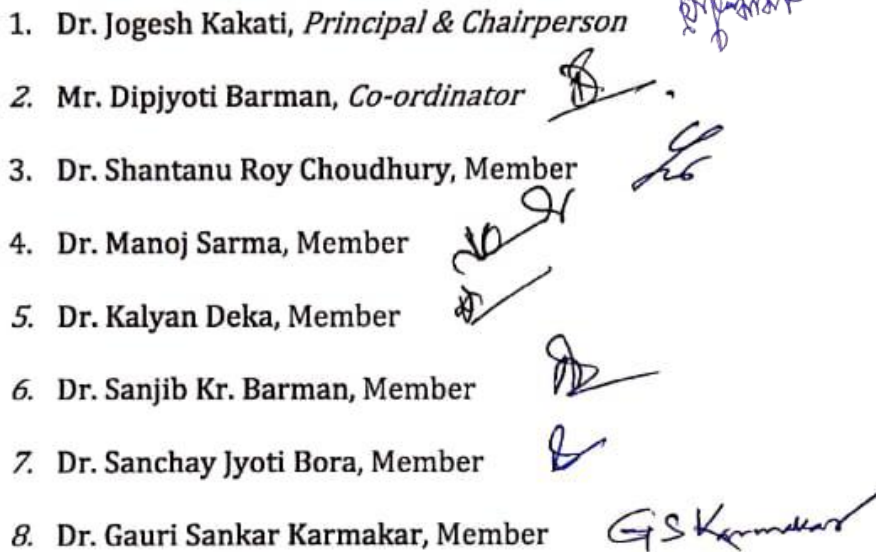 1. Dr. Jogesh Kakati, Principal & Chairperson
2. Mr. Dipjyoti Barman, Co-ordinator
3. Dr. Shantanu Roy Choudhury, Member
4. Dr. Manoj Sarma, Member
5. Dr. Kalyan Deka, Member
6. Dr. Sanjib Kr. Barman, Member
7. Dr. Sanchay Jyoti Bora, Member
8. Dr. Gauri Sankar Karmakar, Member GS Karmakar